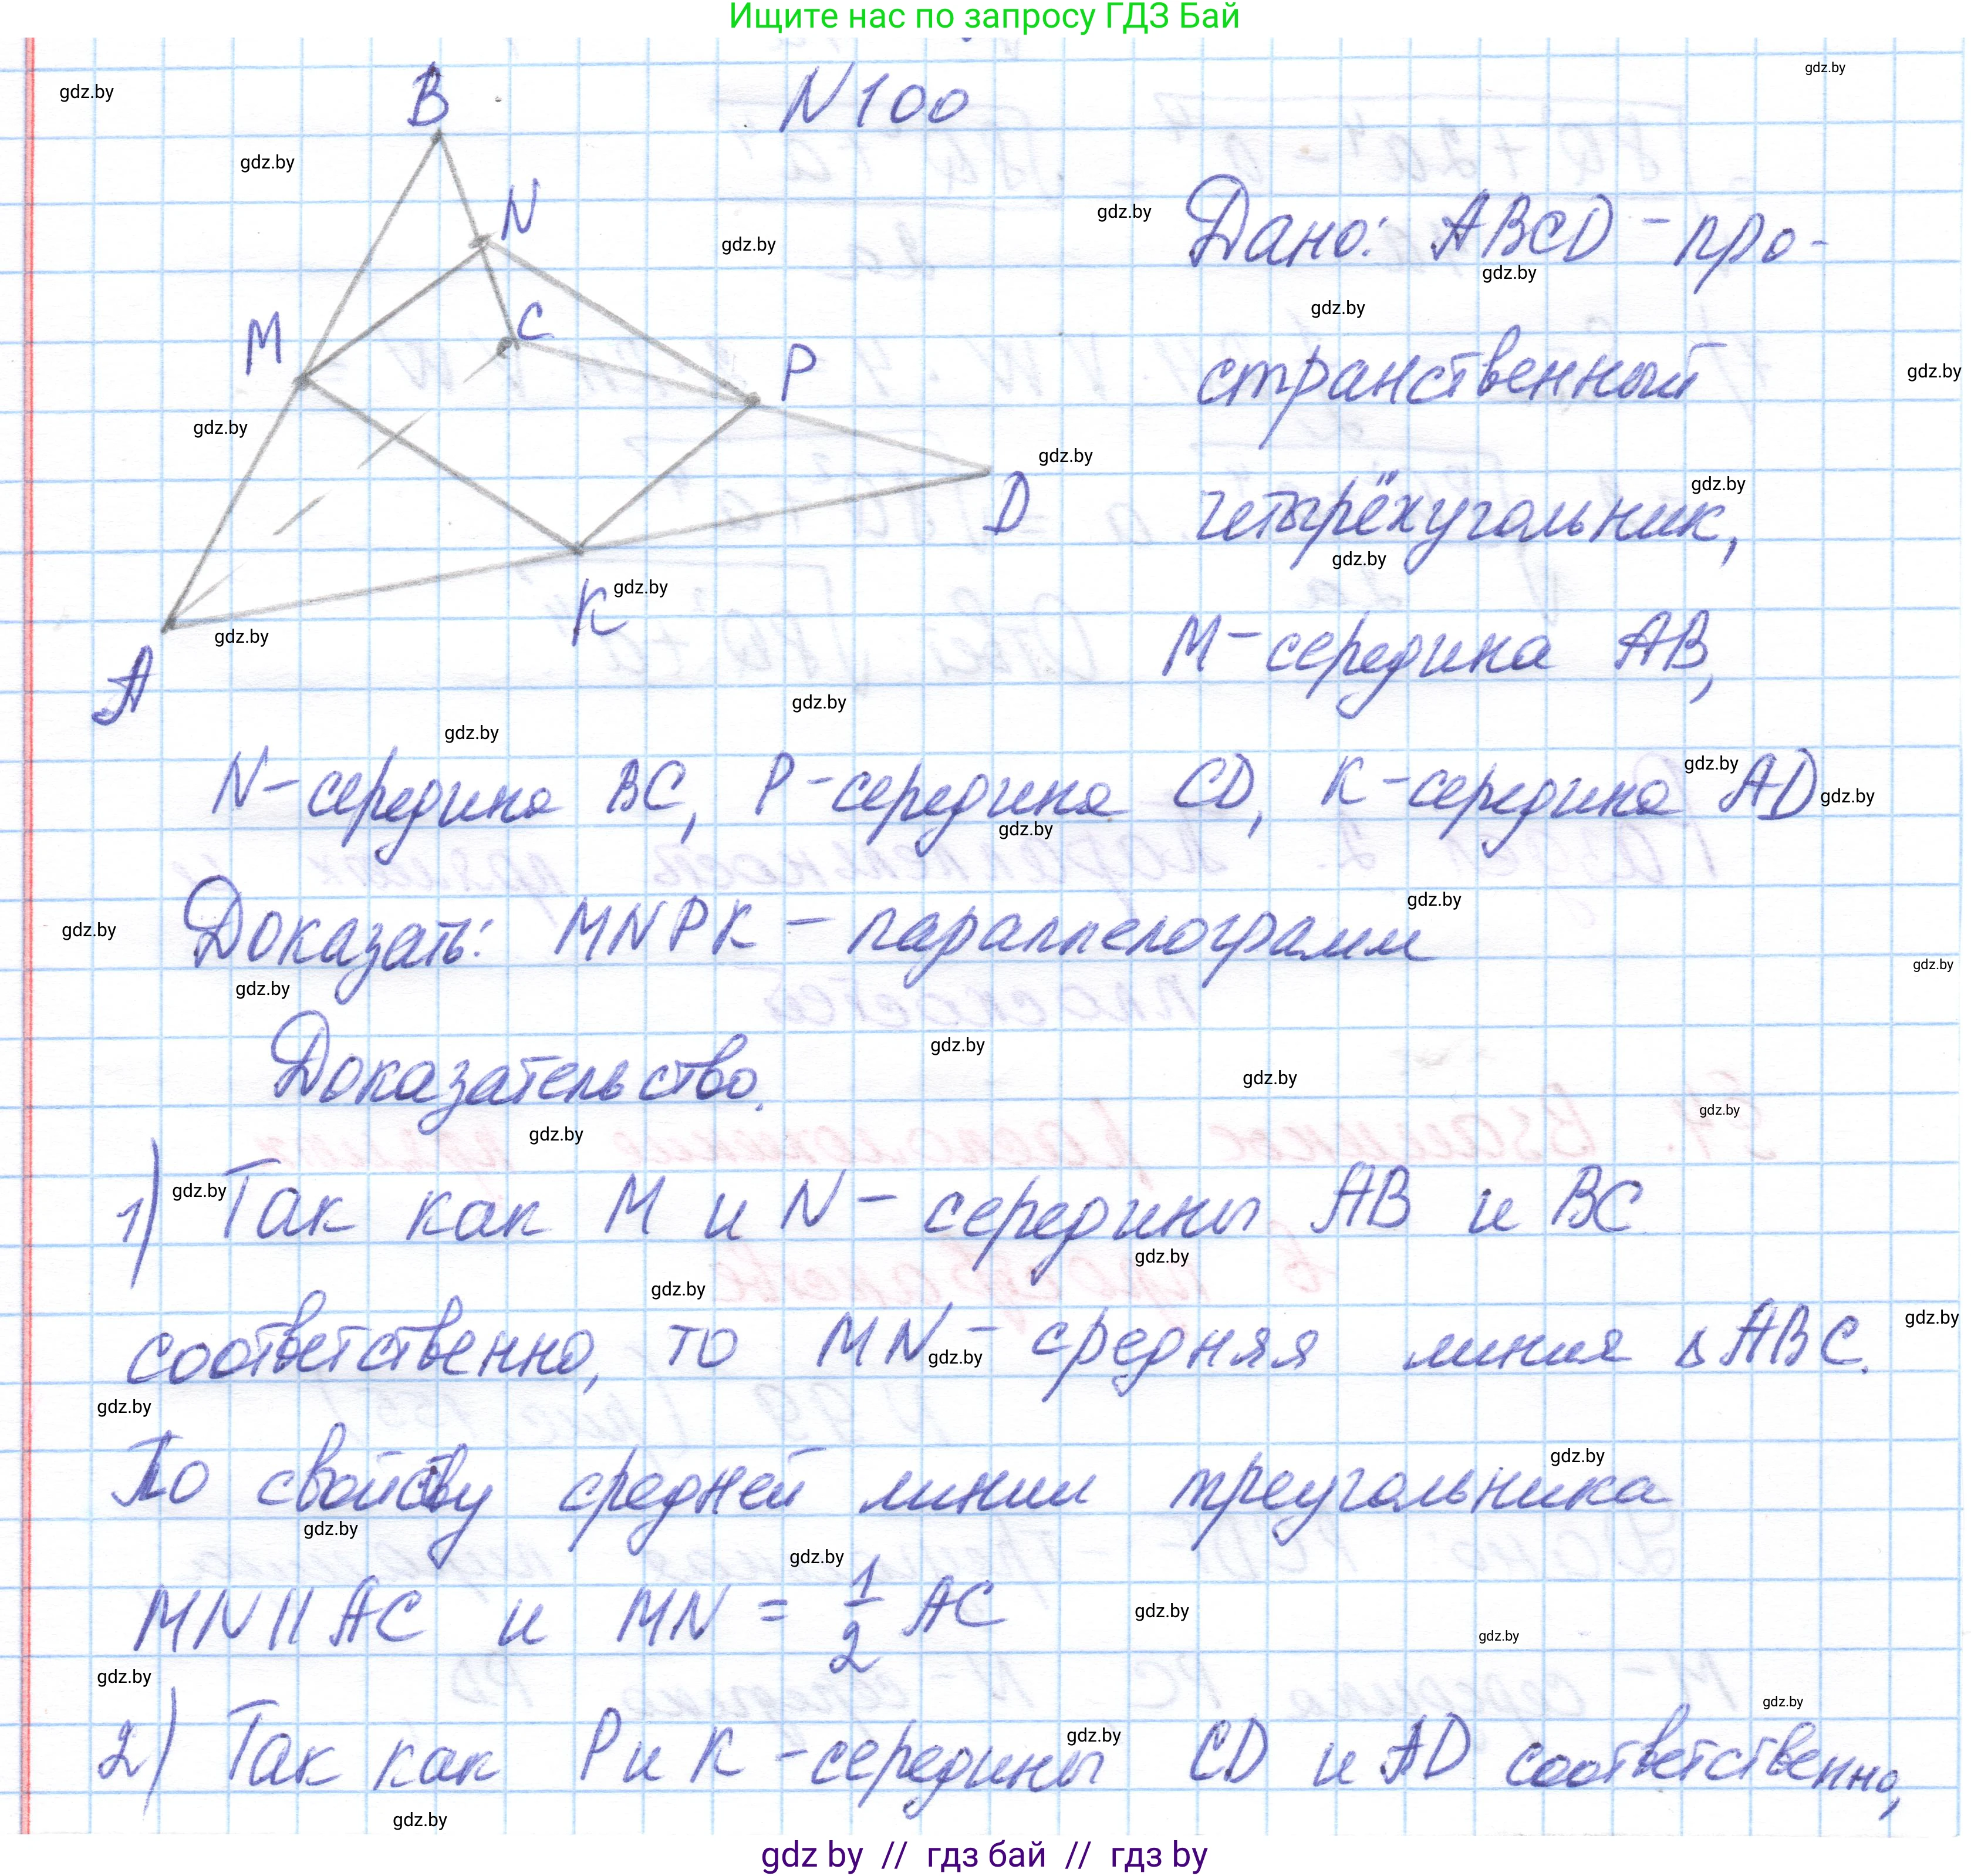 Ищите нас по запросу ГДЗ Бай
N 100
B
N
M
C
P
D
K
A
Дано: ABCD - про-
странственный
четырёхугольник,
M - середина AB,
N - середина BC, P - середина CD, K - середина AD
Доказать: MNPK - параллелограмм
Доказательство.
1) Так как M и N - середины AB и BC
соответственно, то MN - средняя линия ΔABC.
По свойству средней линии треугольника
MN || AC и MN = 1/2 AC
2) Так как P и K - середины CD и AD соответственно,
gdz.by
gdz by // гдз бай // гдз by